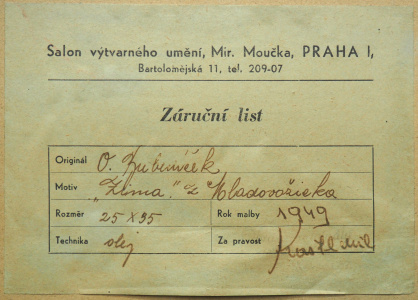 Salon výtvarného umění, Mir. Moučka, PRAHA I,
Bartolomějská 11, tel. 209-07
Záruční list
Originál O. Kubeníček
Motiv „Zima“. z Mladovožicka
Rozměr 25 x 35 Rok malby 1949
Technika olej Za pravost